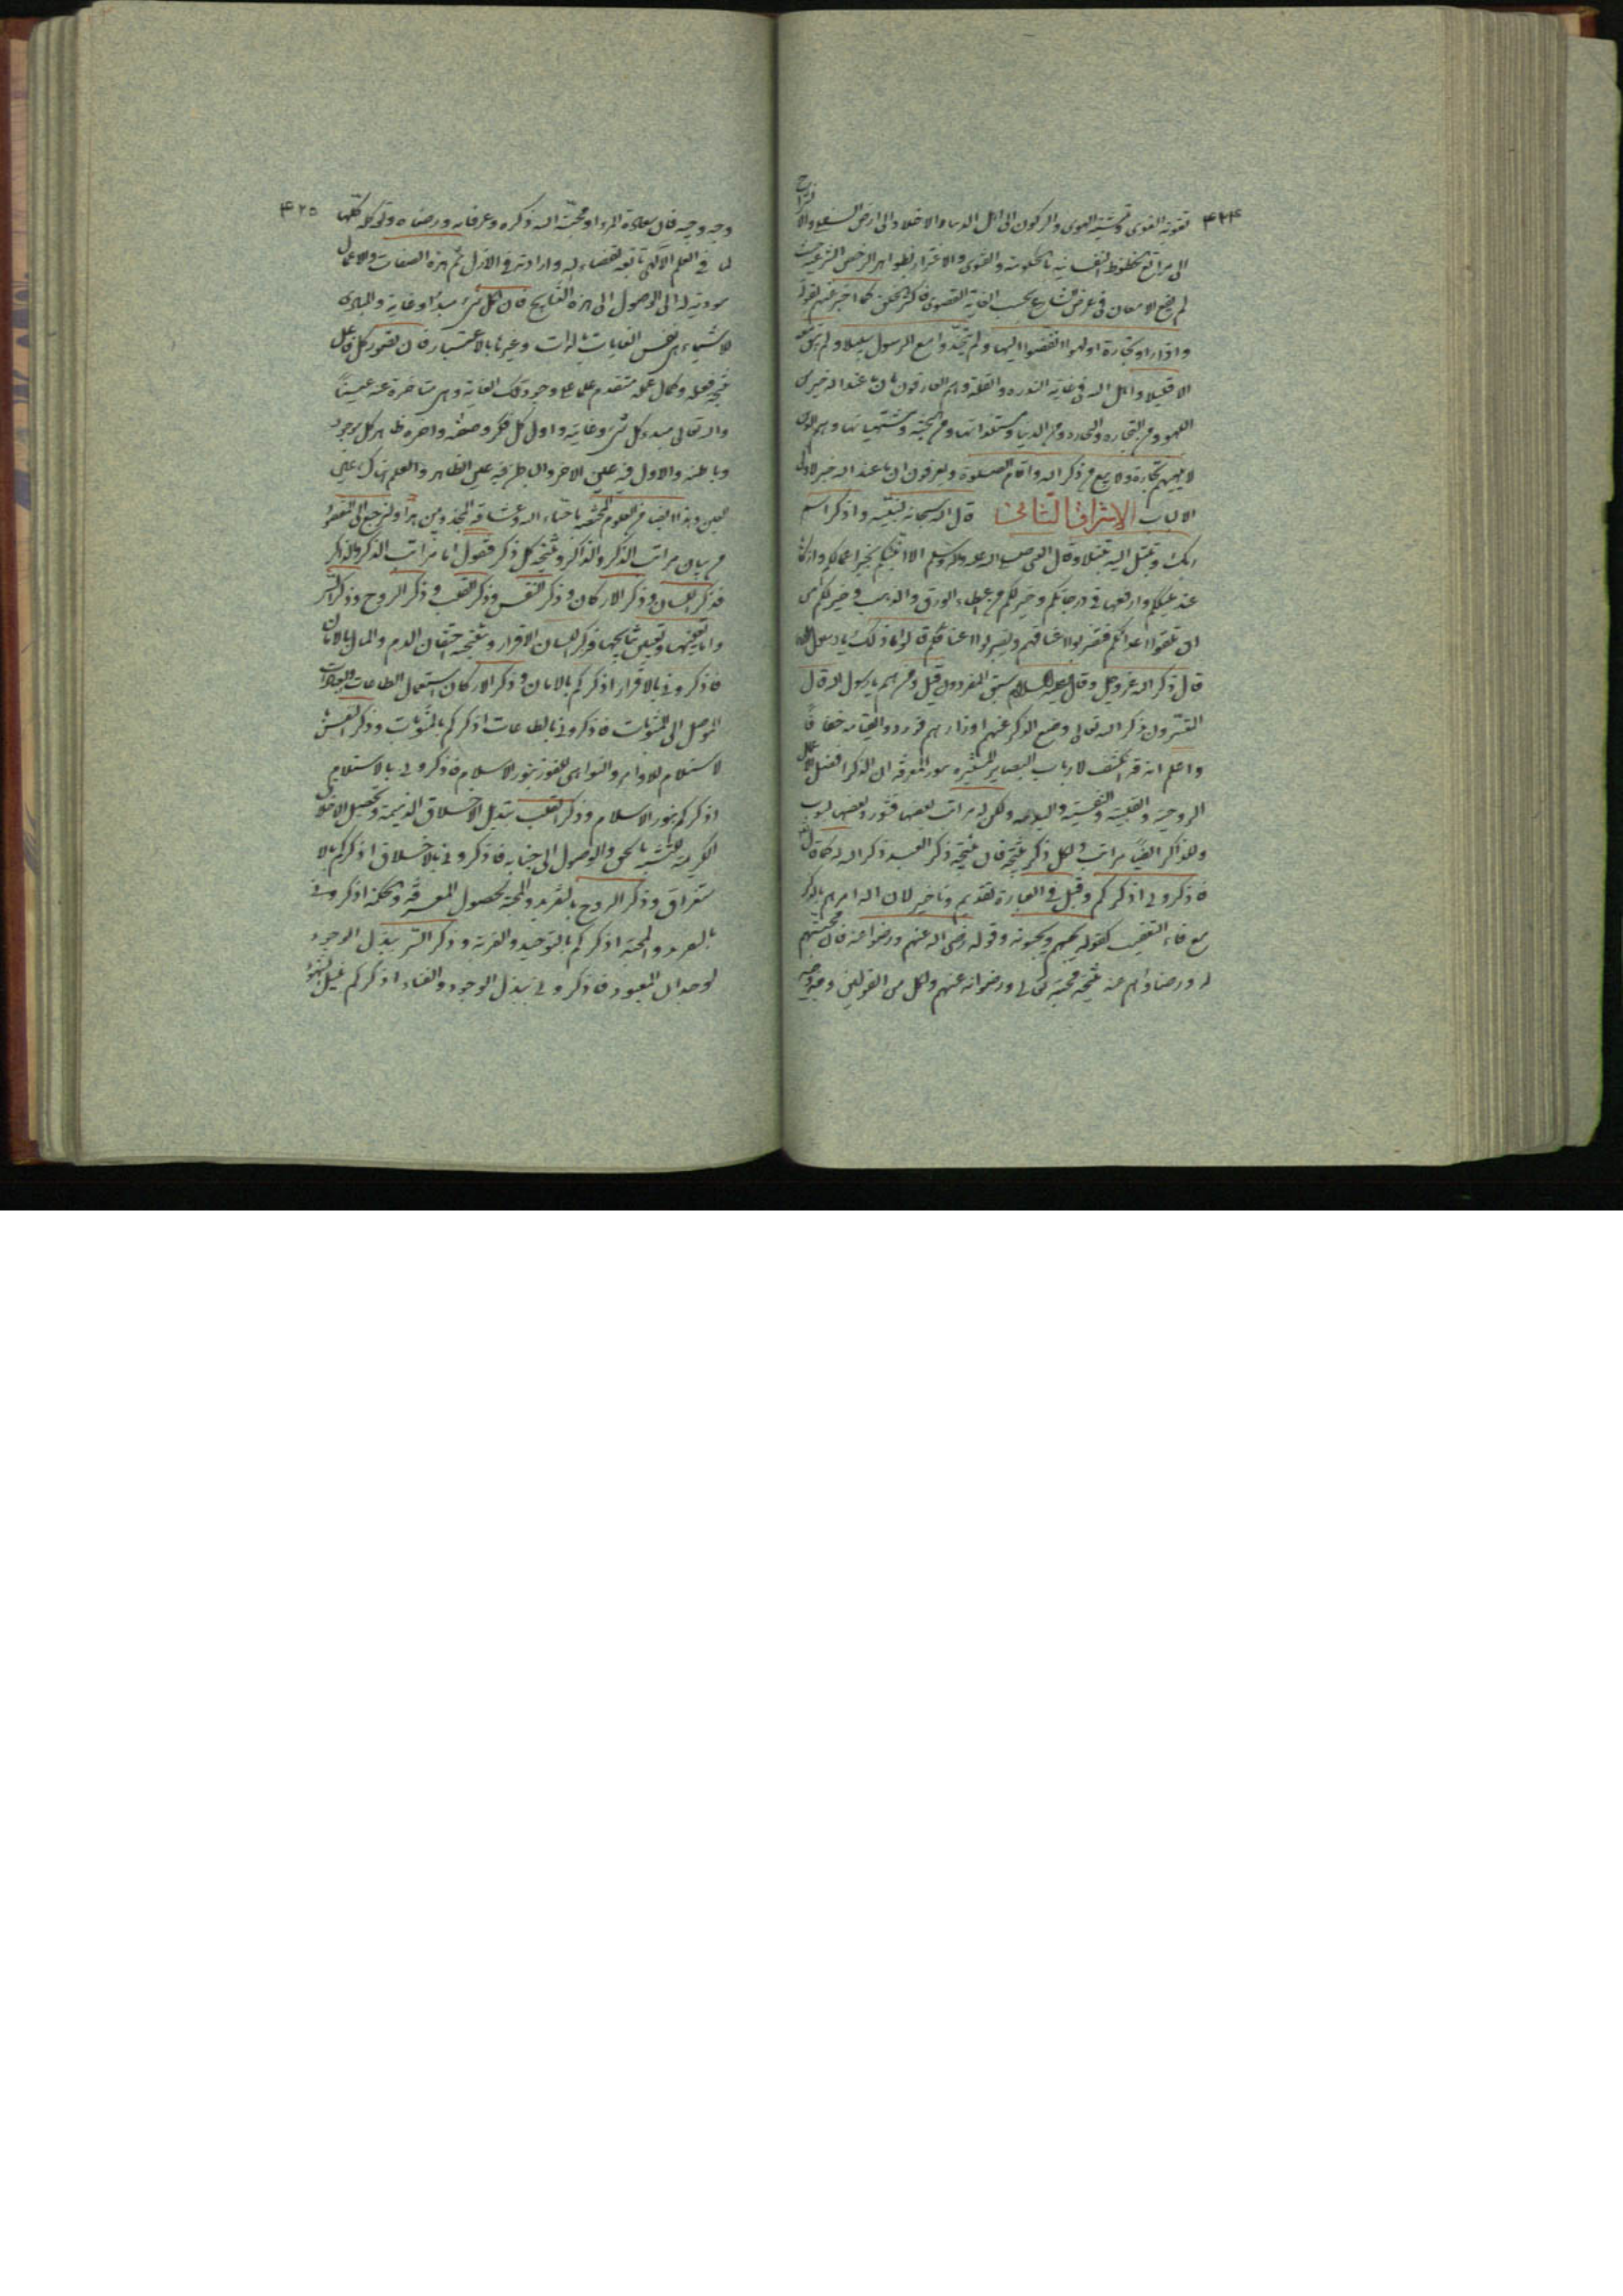 ۴۲۴
تقویة القوى و الهوى والركون الى اهل الدنيا والاخلاد الى ارض
الى مراتع الحظوظ النفسانية بالحكومة والفتوى والاغترار بظواهر الرخص الشرعية حيث
لم يقع الامعان فى غرض الشارع بحسب الغاية القصوى فاكثر الخلق كما اخبر عنهم بقوله
واذا راوا تجارة او لهوا انفضوا اليها ولم يتخذوا مع الرسول سبيلا ولم يبق معه
الا قليلا واهل الله فى غاية الندرة والقلة وهم العارفون بان ما عند الله خير من
اللهو ومن التجارة ومن الدنيا ومستلذاتها ومن الجنة ومشتهياتها وهم الذين
لا تلهيهم تجارة ولا بيع عن ذكر الله واقام الصلوة ويعرفون ان ما عند الله خير لاولى
الالباب الاشراق الثانى قال الله سبحانه لنبيه واذكر اسم
ربك وتبتل اليه تبتيلا وقال النبى صلى الله عليه وآله وسلم الا انبئكم بخير اعمالكم وازكاها
عند مليككم وارفعها فى درجاتكم وخير لكم من اعطاء الورق والذهب وخير لكم من
ان تلقوا اعدائكم فتضربوا اعناقهم ويضربوا اعناقكم قالوا ما ذلك يا رسول الله
قال ذكر الله عز وجل وقال عليه السلام سبق المفردون قيل ومن هم يا رسول الله قال
المستهترون بذكر الله تعالى وضع الذكر عنهم اوزارهم فوردوا القيامة خفافا
واعلم انه قد انكشف لارباب البصاير المستنيرة بنور المعرفة ان الذكر افضل الاعمال
الروحية والقلبية والنفسية والبدنية ولكن له مراتب بعضها قشور وبعضها لبوب
وللذاكر ايضا مراتب ولكل ذكر نتيجة فان نتيجة ذكر العبد ذكر الله له كما قال
فاذكرونى اذكركم وقيل فى العبارة تقديم وتاخير لان الله امرهم بالذكر
مع فاء التعقيب كقوله يحبهم ويحبونه وقوله رضى الله عنهم ورضوا عنه فان محبتهم
له ورضاهم عنه نتيجة محبته تعالى ورضوانه عنهم ولكل من القولين وجه وجيه
۴۲۵
وجه وجيه فان سعادة المرء او محبة الله وذكره وعرفانه ورضاه وتوكله كلها
لما فى العلم الالهى تابعة لقضاء الله وارادته فى الازل ثم هذه الصفات والاعمال
مؤدية له الى الوصول الى هذه النتايج فان لكل شىء مبدأ وغاية والمبادى
للاشياء هى نفس الغايات بالذات وغيرها بالاعتبار فان تصور كل فاعل
نتيجة فعله وكمال عمله متقدم علما على وجود تلك الغاية وهى متاخرة عنه عينا
والله تعالى مبدء كل شىء وغايته واول كل فكر وصفة وآخره ظاهر كل موجود
وباطنه والاول فيه عين الاخر والباطن فيه عين الظاهر والعلم هناك عين
العين وهذا ايضا من العلوم المختصة باحباء الله وعشاقه المجذوبين هذا ولنرجع الى المقصود
من بيان مراتب الذكر والذاكر ونتيجة كل ذكر فنقول اما مراتب الذكر والذاكر
فذكر اللسان وذكر الاركان وذكر النفس وذكر القلب وذكر الروح وذكر السر
واما تعيينها وتعيين نتايجها فذكر اللسان الاقرار ونتيجته حقن الدم والمال بالامان
فاذكرونى بالاقرار اذكركم بالامان وذكر الاركان استعمال الطاعات والعبادات
الموصل الى المثوبات فاذكرونى بالطاعات اذكركم بالمثوبات وذكر النفس
الاستسلام للاوامر والنواهى للفوز بنور الاسلام فاذكرونى بالاستسلام
اذكركم بنور الاسلام وذكر القلب تبديل الاخلاق الذميمة وتحصيل الاخلاق
الكريمة للتشبه بالحق والوصول الى جنابه فاذكرونى بالاخلاق اذكركم بالا
ستغراق وذكر الروح بالتفريد والمحبة لحصول المعرفة والحكمة اذكرونى
بالتفريد والمحبة اذكركم بالتوحيد والقربة وذكر السر ببذل الوجود
لوجدان المعبود فاذكرونى ببذل الوجود والفناء اذكركم بنيل الشهود